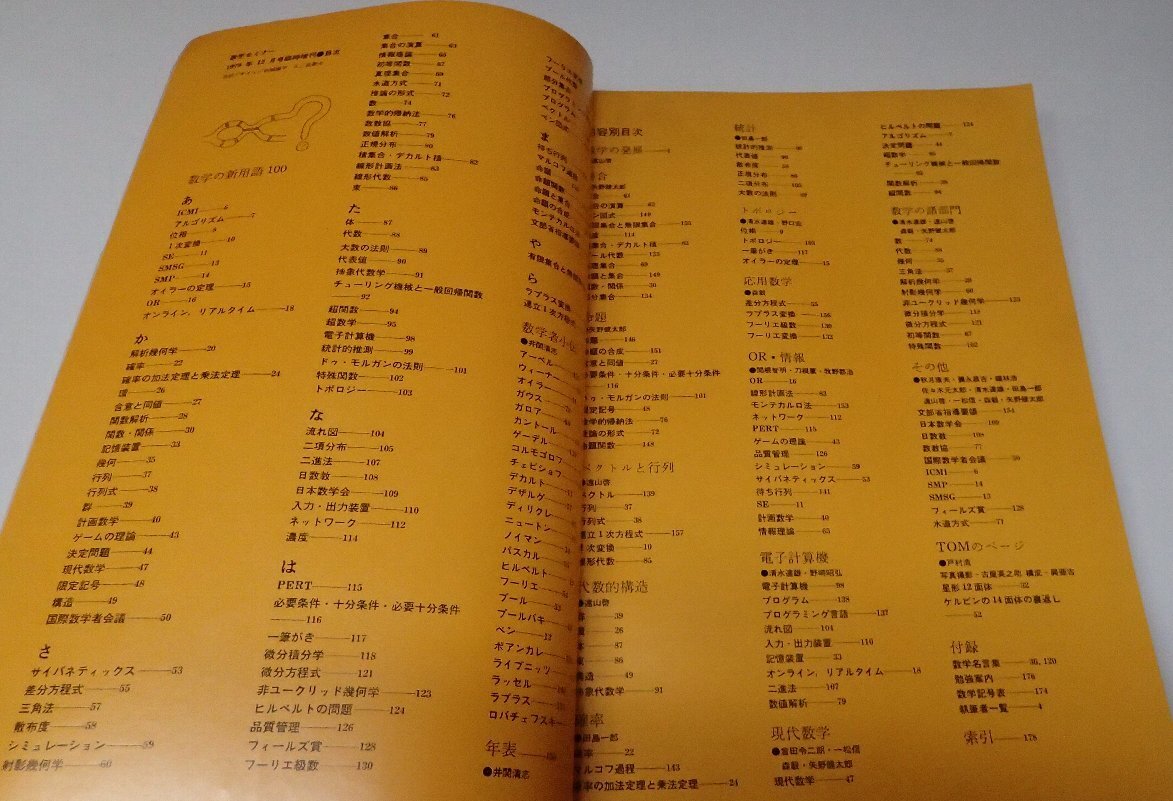 数学セミナー
1979年12月号臨時増刊●目次
数学の新用語100
あ
ICMI——6
アルゴリズム——7
位相——8
1次変換——10
SE——11
SMSG——13
SMP——14
オイラーの定理——15
OR——16
オンライン, リアルタイム——18
か
解析幾何学——20
確率——22
確率の加法定理と乗法定理——24
環——26
含意と同値——27
関数解析——28
関数・関係——30
記憶装置——33
幾何——35
行列——37
行列式——38
群——39
計画数学——40
ゲームの理論——43
決定問題——44
現代数学——47
限定記号——48
構造——49
国際数学者会議——50
さ
サイバネティックス——53
差分方程式——55
三角法——57
散布度——58
シミュレーション——59
射影幾何学——60
集合——61
集合の演算——63
情報理論——65
初等関数——67
真理集合——69
水道方式——71
推論の形式——72
数——74
数学的帰納法——76
数教協——77
数値解析——79
正規分布——80
積集合・デカルト積——82
線形計画法——83
線形代数——85
束——86
た
体——87
代数——88
大数の法則——89
代表値——90
抽象代数学——91
チューリング機械と一般回帰関数
——92
超関数——94
超数学——95
電子計算機——98
統計的推測——99
ドゥ・モルガンの法則——101
特殊関数——102
トポロジー——103
な
流れ図——104
二項分布——105
二進法——107
日数教——108
日本数学会——109
入力・出力装置——110
ネットワーク——112
濃度——114
は
PERT——115
必要条件・十分条件・必要十分条件
——116
一筆がき——117
微分積分学——118
微分方程式——121
非ユークリッド幾何学——123
ヒルベルトの問題——124
品質管理——126
フィールズ賞——128
フーリエ級数——130
フーリエ変換
ブール代数
部分集合
プログラム
プログラミ
ベクトル
ベン図式
ま
待ち行列
マルコフ過程
命題
命題関数
命題と集合
命題の合成
モンテカルロ法
文部省指導要領
や
有限集合と無限集合
ら
ラプラス変換
連立1次方程式
数学者小伝
●井関清志
アーベル
ウィーナー
オイラー
ガウス
ガロア
カントール
ゲーデル
コルモゴロフ
チェビショフ
デカルト
デザルグ
ディリクレ
ニュートン
ノイマン
パスカル
ヒルベルト
フーリエ
ブール
ブルバキ
ベン
ポアンカレ
ライプニッツ
ラッセル
ラプラス
ロバチェフスキー
年表
●井関清志
内容別目次
数学の発展——1
遠山啓
集合
矢野健太郎
集合の演算——63
ベン図式——149
有限集合と無限集合——155
濃度——114
積集合・デカルト積——82
ブール代数——133
真理集合——69
命題と集合——149
関数・関係——30
部分集合——134
命題
矢野健太郎
命題——146
命題の合成——151
含意と同値——27
必要条件・十分条件・必要十分条件
——116
ドゥ・モルガンの法則——101
限定記号——48
数学的帰納法——76
推論の形式——72
命題関数——148
ベクトルと行列
●遠山啓
ベクトル——139
行列——37
行列式——38
連立1次方程式——157
1次変換——10
線形代数——85
代数的構造
●遠山啓
群——39
環——26
体——87
束——86
構造——49
抽象代数学——91
確率
●田島一郎
確率——22
マルコフ過程——143
確率の加法定理と乗法定理——24
統計
●田島一郎
統計的推測——99
代表値——90
散布度——58
正規分布——80
二項分布——105
大数の法則——89
トポロジー
●清水達雄・野口宏
位相——8
トポロジー——103
一筆がき——117
オイラーの定理——15
応用数学
●森毅
差分方程式——55
ラプラス変換——156
フーリエ級数——130
フーリエ変換——132
OR・情報
●関根智明・刀根薫・牧野都治
OR——16
線形計画法——83
モンテカルロ法——153
ネットワーク——112
PERT——115
ゲームの理論——43
品質管理——126
シミュレーション——59
サイバネティックス——53
待ち行列——141
SE——11
計画数学——40
情報理論——65
電子計算機
●清水達雄・野崎昭弘
電子計算機——98
プログラム——138
プログラミング言語——137
流れ図——104
入力・出力装置——110
記憶装置——33
オンライン, リアルタイム——18
二進法——107
数値解析——79
現代数学
●宮田令二郎・一松信
森毅・矢野健太郎
現代数学——47
ヒルベルトの問題——124
アルゴリズム——7
決定問題——44
超数学——95
チューリング機械と一般回帰関数
——92
関数解析——28
超関数——94
数学の諸部門
●清水達雄・遠山啓
森毅・矢野健太郎
数——74
代数——88
幾何——35
三角法——57
解析幾何学——20
射影幾何学——60
非ユークリッド幾何学——123
微分積分学——118
微分方程式——121
初等関数——67
特殊関数——102
その他
文部省指導要領——154
日本数学会——109
日数教——108
数教協——77
国際数学者会議——50
ICMI——6
SMP——14
SMSG——13
フィールズ賞——128
水道方式——71
TOMのページ
●戸村浩
星形12面体——32
ケルビンの14面体の裏返し
——52
付録
数学名言集——36,120
勉強案内——176
数学記号表——174
執筆者一覧——4
索引——178